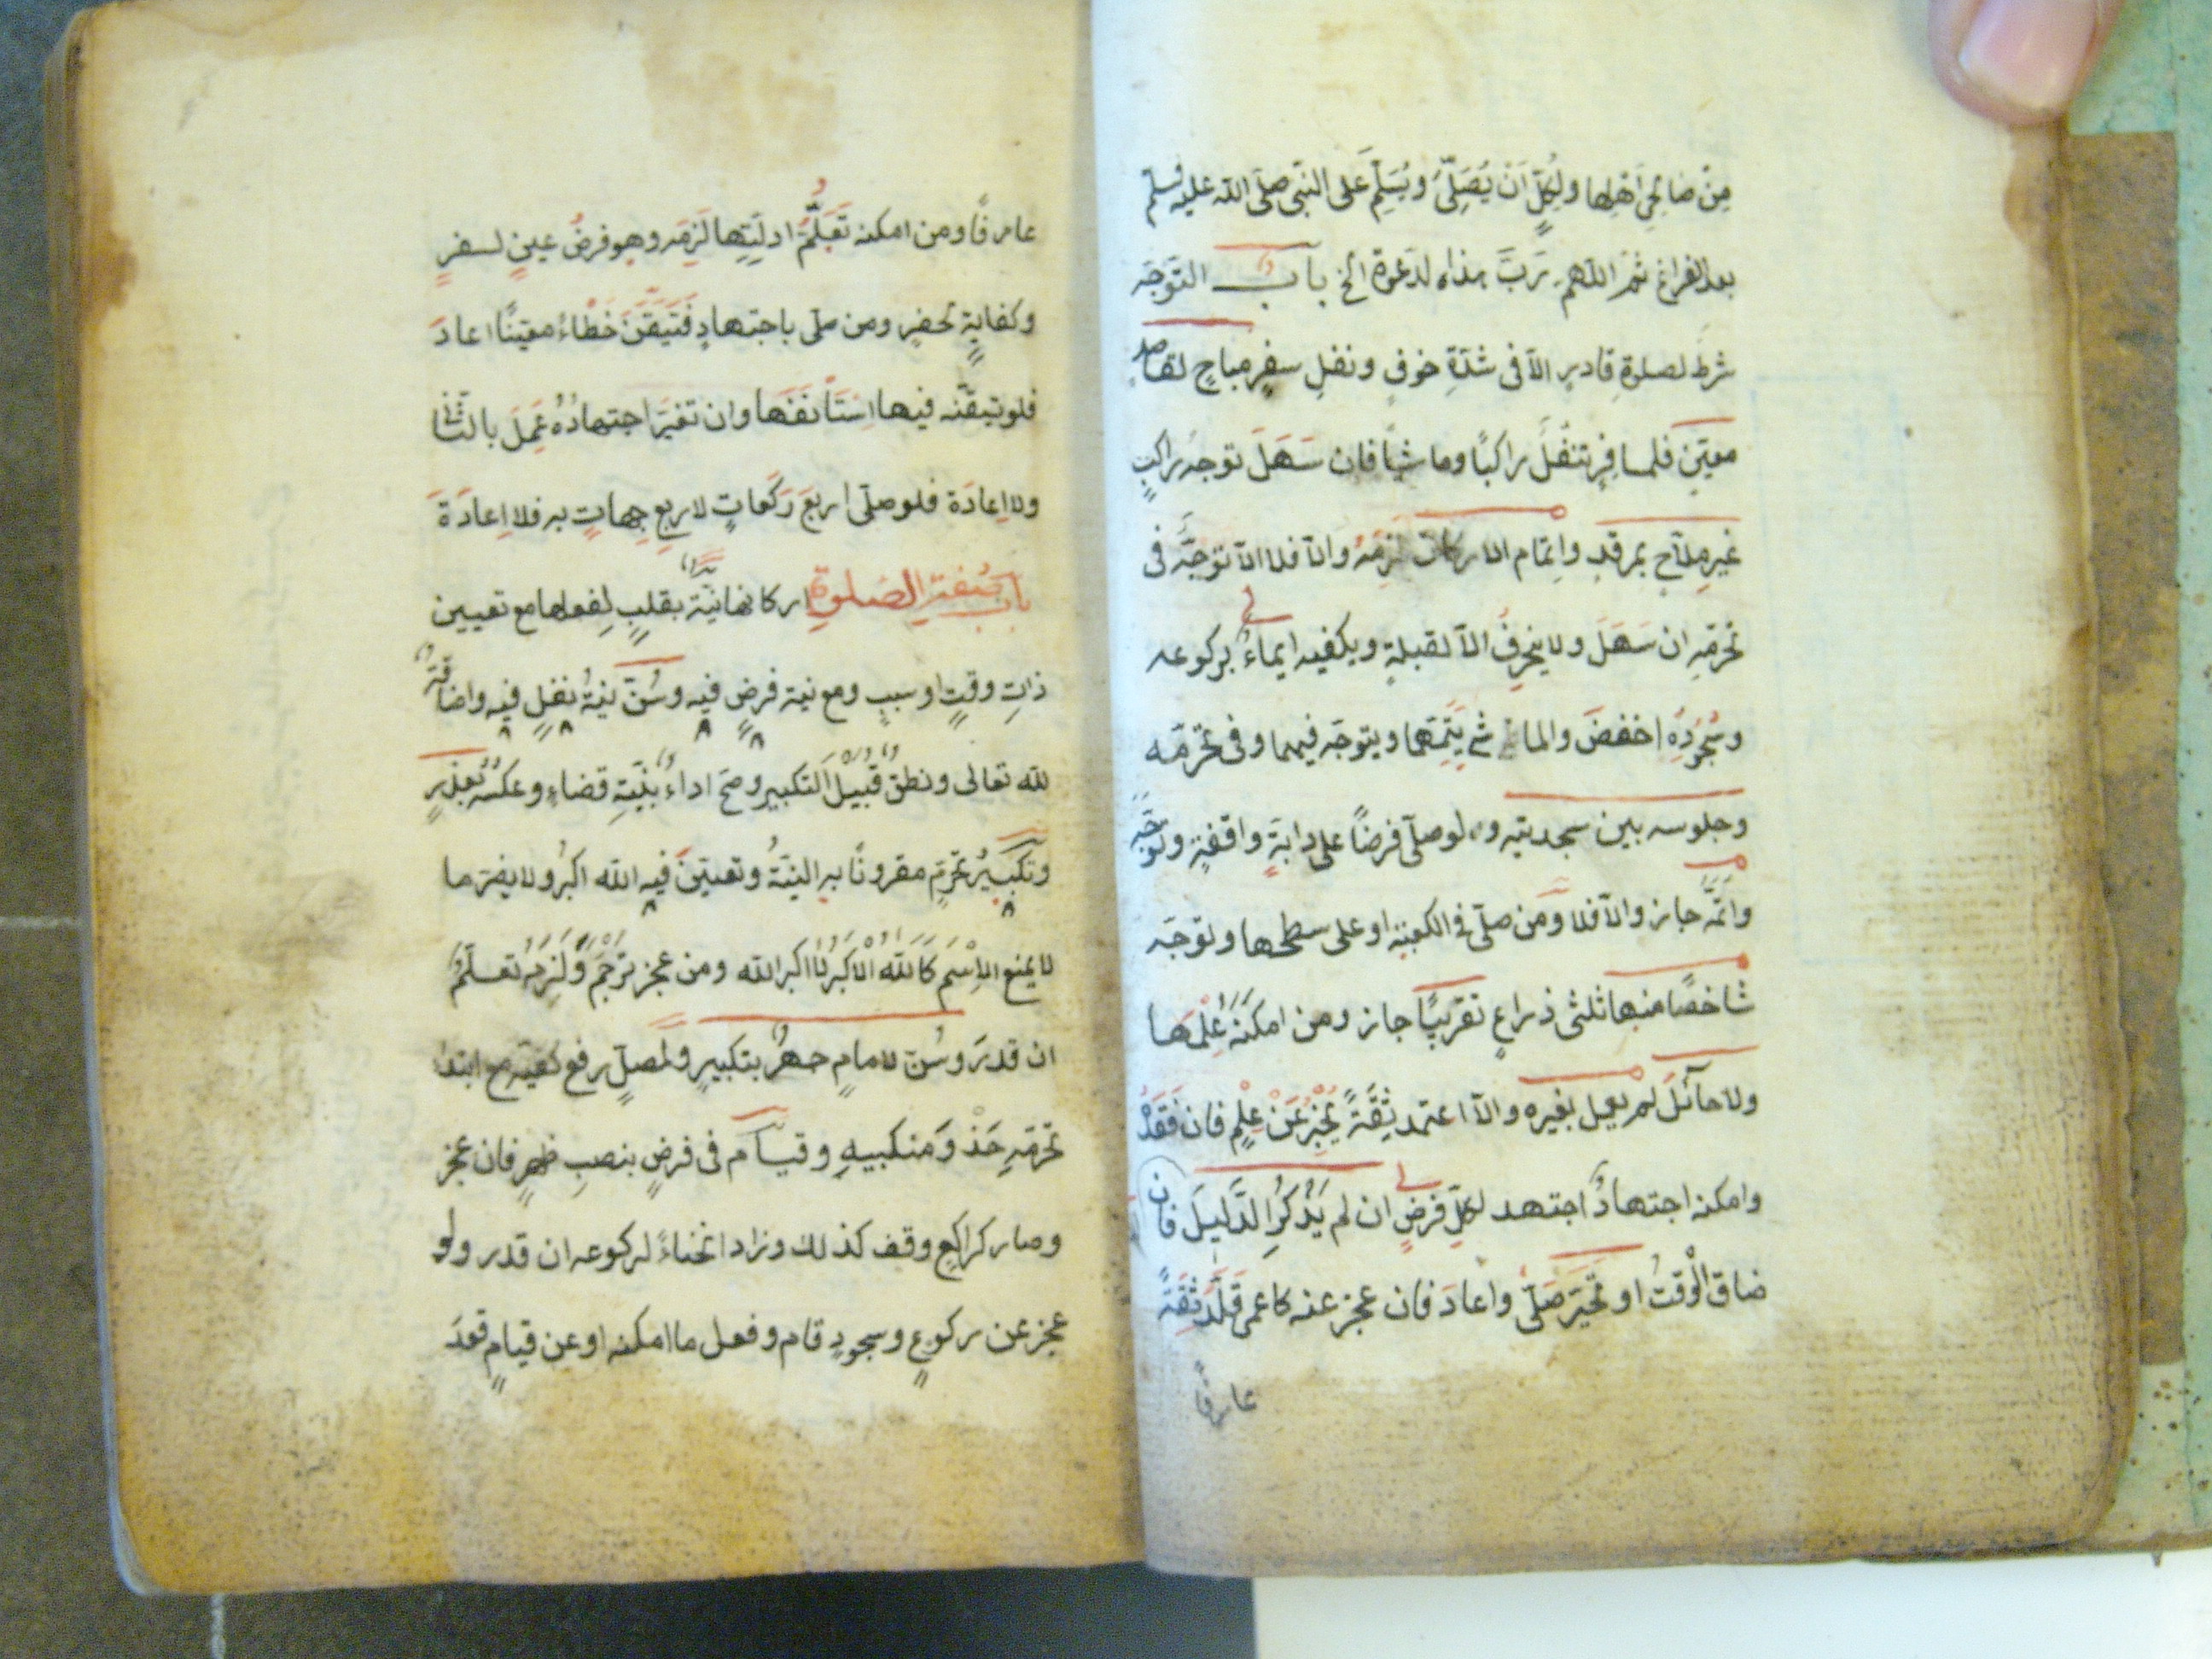 مِنْ صَالِحِي اَهْلِهَا ولِكُلٍّ اَنْ يُصَلِّىَ ويُسَلِّمَ عَلى النبّى صلّى اللّه عليه وسلّم
بعد الفراغ ثمّ اللّهمّ رَبَّ هذه الدعوة الخ باب التوَجّه
شرط لصلوةِ قادرٍ الاّ فى شدّةِ خوفٍ ونفلِ سفرٍ مباحٍ لقاصدِ
معيّنٍ فلمسافرٍ تنفّلٌ راكبًا وماشيًا فان سَهَلَ توجّه راكبٍ
غيرِ ملاّحٍ بمرقدٍ واِتمام الاركان لزِمَهُ والاّ فلا الاّ توجّهٌ فى
تحرّمِه ان سَهَلَ ولا ينحرِفُ الاّ لقبلةٍ ويكفيه ايماءٌ بركوعه
وسُجُودِهِ اخفضَ والماشى يُتِمّهما ويتوجّه فيهما وفى تحرّمه
وجلوسه بين سجدتيه ولوصلّى فرضًا على دابّةٍ واقفةٍ وتوجّه
واتمّه جاز والاّ فلا ومن صلّى فى الكعبة او على سطحها وتوجّه
شاخصًا منها ثلثى ذراعٍ تقريبًا جاز ومن امكنَهُ عِلْمُها
ولا حائلَ لم يعمل بغيره والاّ اعتمد ثِقَةً يُخْبِرُ عَنْ عِلْمٍ فان فَقَدَهُ
وامكنه اجتهادٌ اجتهد لكلِّ فرضٍ ان لم يَذْكُرِ الدَّليلَ فان
ضاق الْوقتُ او تحَيّرَ صَلّى واعادَ فان عجز عنه كاعمى قَلَّدَ ثِقَةً
عارفًا
عارفًا ومن امكنه تَعَلُّمُ ادلّتِها لَزِمَه وهو فرضُ عينٍ لسفرٍ
وكفايةٍ لحضرٍ ومن صلّى باجتهادٍ فَتَيَقَّنَ خَطْاءً معيّنًا اعادَ
فلو تيقّنه فيها اسْتَأنَفَها وان تغيّرَ اجتهادُهُ عَمِلَ بالثّانى
ولا اِعادَة فلو صلّى اربعَ رَكَعاتٍ لاربعِ جِهاتٍ به فلا اِعادَةَ
باب صفة الصلوة اركانها نيّة بقلبٍ لِفعلها مع تعيين
ذاتِ وقتٍ او سببٍ ومع نية فرضٍ فيه وسُنّ نيةُ نفلٍ فيه واضافةٌ
للّه تعالى ونطقٌ قُبَيْلَ التكبير وصحّ اداءٌ بنيّةِ قضاءٍ وعكسُه بعذرٍ
وتكبيرُ تحرّمٍ مقرونًا به النيّةُ وتعيّنَ فيه اللّه اكبرُ ولا يضرّ ما
لا يمنع الاِسْمَ كَاَللّه الْاَكْبَرُ لا اكبر اللّه ومن عجز تَرْجَمَ وَلَزِمَهُ تعلّمٌ
ان قدرَ وسُنّ لامامٍ جهرٌ بتكبيرٍ ولمصلٍّ رفعُ كفّيه مع ابتداء
تحرّمِه حَذْوَ مَنكبيهِ وقيامٌ فى فرضٍ بنصبِ ظهرٍ فان عجز
وصار كراكعٍ وقف كذلك وزاد انحناءً لركوعه ان قدر ولو
عجز عن ركوعٍ وسجودٍ قام وفعل ما امكنه او عن قيامٍ قعدَ